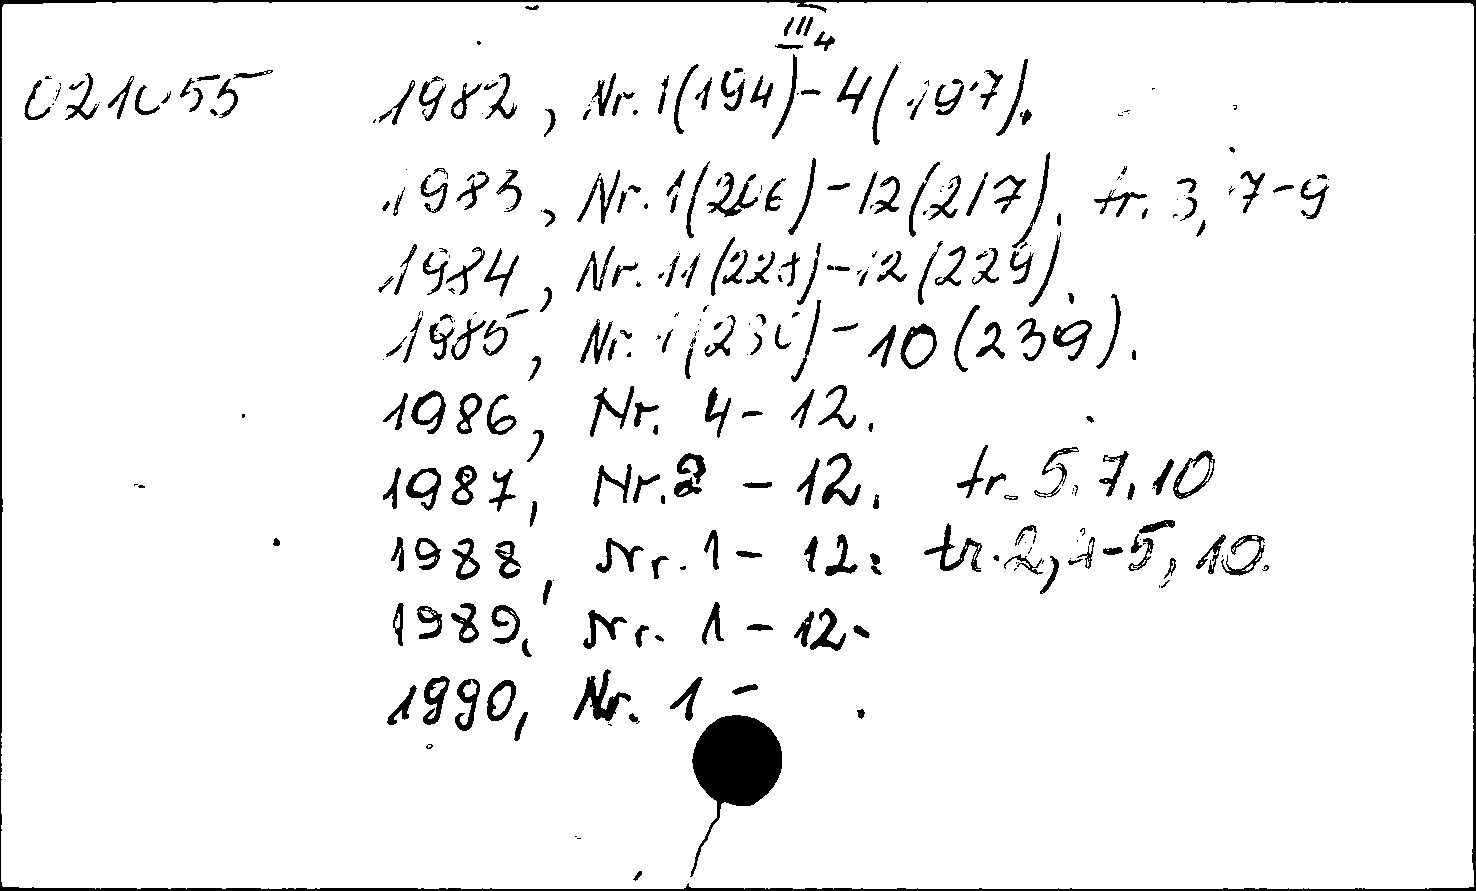 III4
021055 1982, Nr. 1(194)-4(197).
1983, Nr. 1(206)-12(217). tr. 3, 7-9
1984, Nr. 11(228)-12(229).
1985, Nr. 1(230)-10(239).
1986, Nr. 4-12.
1987, Nr. 2 - 12. tr. 5. 7. 10
1988, Nr. 1 - 12: tr. 2, 4-5, 10.
1989. Nr. 1 - 12.
1990, Nr. 1 - .